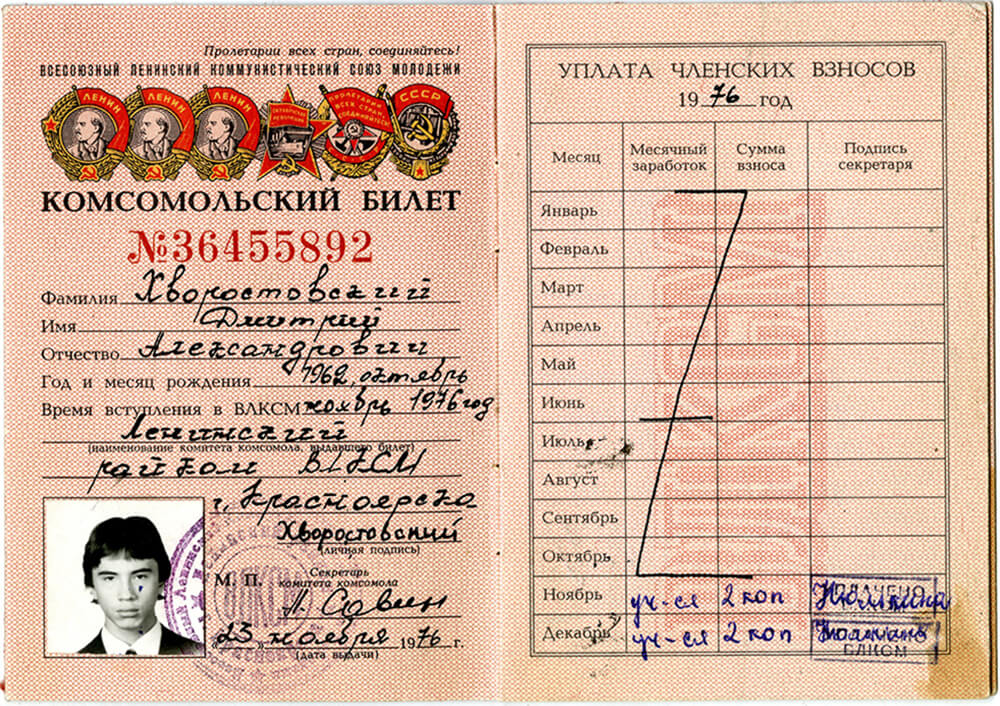 Пролетарии всех стран, соединяйтесь!
ВСЕСОЮЗНЫЙ ЛЕНИНСКИЙ КОММУНИСТИЧЕСКИЙ СОЮЗ МОЛОДЕЖИ
ЛЕНИН ЛЕНИН ЛЕНИН ОКТЯБРЬСКАЯ РЕВОЛЮЦИЯ ПРОЛЕТАРИИ ВСЕХ СТРАН, СОЕДИНЯЙТЕСЬ! СССР
КОМСОМОЛЬСКИЙ БИЛЕТ
№36455892
Фамилия Хворостовский
Имя Дмитрий
Отчество Александрович
Год и месяц рождения 1962, октябрь
Время вступления в ВЛКСМ ноябрь 1976 год
Ленинский
(наименование комитета комсомола, выдавшего билет)
райком ВЛКСМ
г. Красноярска
Хворостовский
(личная подпись)
М. П. Секретарь комитета комсомола
Н. Савин
«23» ноября 1976 г.
(дата выдачи)
ВЛКСМ
УПЛАТА ЧЛЕНСКИХ ВЗНОСОВ
1976 год
Месяц Месячный заработок Сумма взноса Подпись секретаря
Январь
Февраль
Март
Апрель
Май
Июнь
Июль
Август
Сентябрь
Октябрь
Ноябрь уч-ся 2 коп
Декабрь уч-ся 2 коп
ВЛКСМ